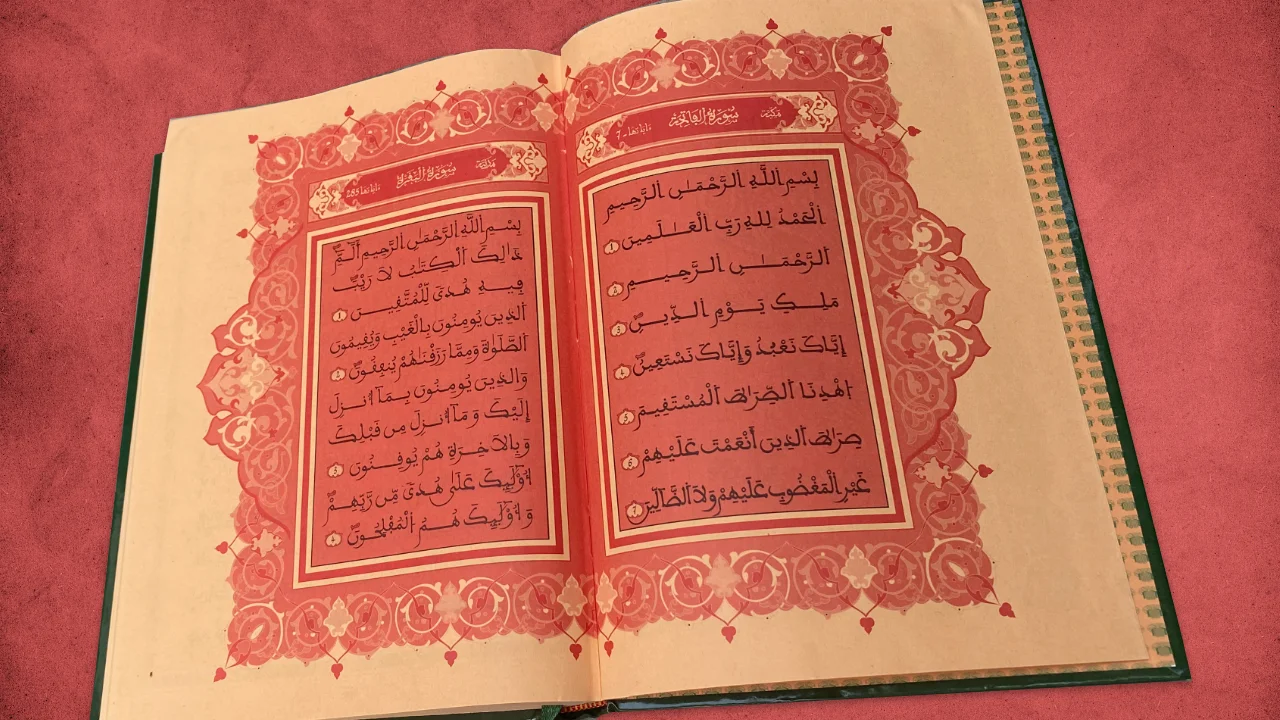 مَكِّيَّة سُورَةُ اَلْفَاتِحَة وَءَايَاتُهَا 7
بِسْمِ اِللَّهِ اِلرَّحْمَٰنِ اِلرَّحِيمِ
اَلْحَمْدُ لِلهِ رَبِّ اِلْعَٰلَمِينَ ١
اَلرَّحْمَٰنِ اِلرَّحِيمِ ٢
مَلِكِ يَوْمِ اِلدِّينِ ٣
إِيَّاكَ نَعْبُدُ وَإِيَّاكَ نَسْتَعِينُ ٤
اَهْدِنَا اَلصِّرَٰطَ اَلْمُسْتَقِيمَ ٥
صِرَٰطَ اَلذِينَ أَنْعَمْتَ عَلَيْهِمْ ٦
غَيْرِ اِلْمَغْضُوبِ عَلَيْهِمْ وَلَا اَلضَّآلِّينَ ٧
مَدَنِيَّة سُورَةُ اَلْبَقَرَة وَءَايَاتُهَا 285
بِسْمِ اِللَّهِ اِلرَّحْمَٰنِ اِلرَّحِيمِ أَلَٓمِّٓ
ذَٰلِكَ اَلْكِتَٰبُ لَا رَيْبَ
فِيهِ هُدىً لِّلْمُتَّقِينَ ١
اَلذِينَ يُومِنُونَ بِالْغَيْبِ وَيُقِيمُونَ
اَلصَّلَوٰةَ وَمِمَّا رَزَقْنَٰهُمْ يُنفِقُونَ ٢
وَالذِينَ يُومِنُونَ بِمَآ أُنزِلَ
إِلَيْكَ وَمَآ أُنزِلَ مِن قَبْلِكَ
وَبِالَاخِرَةِ هُمْ يُوقِنُونَ ٣
أُوْلَٰٓئِكَ عَلَىٰ هُدىً مِّن رَّبِّهِمْ
وَأُوْلَٰٓئِكَ هُمُ اُلْمُفْلِحُونَ ٤